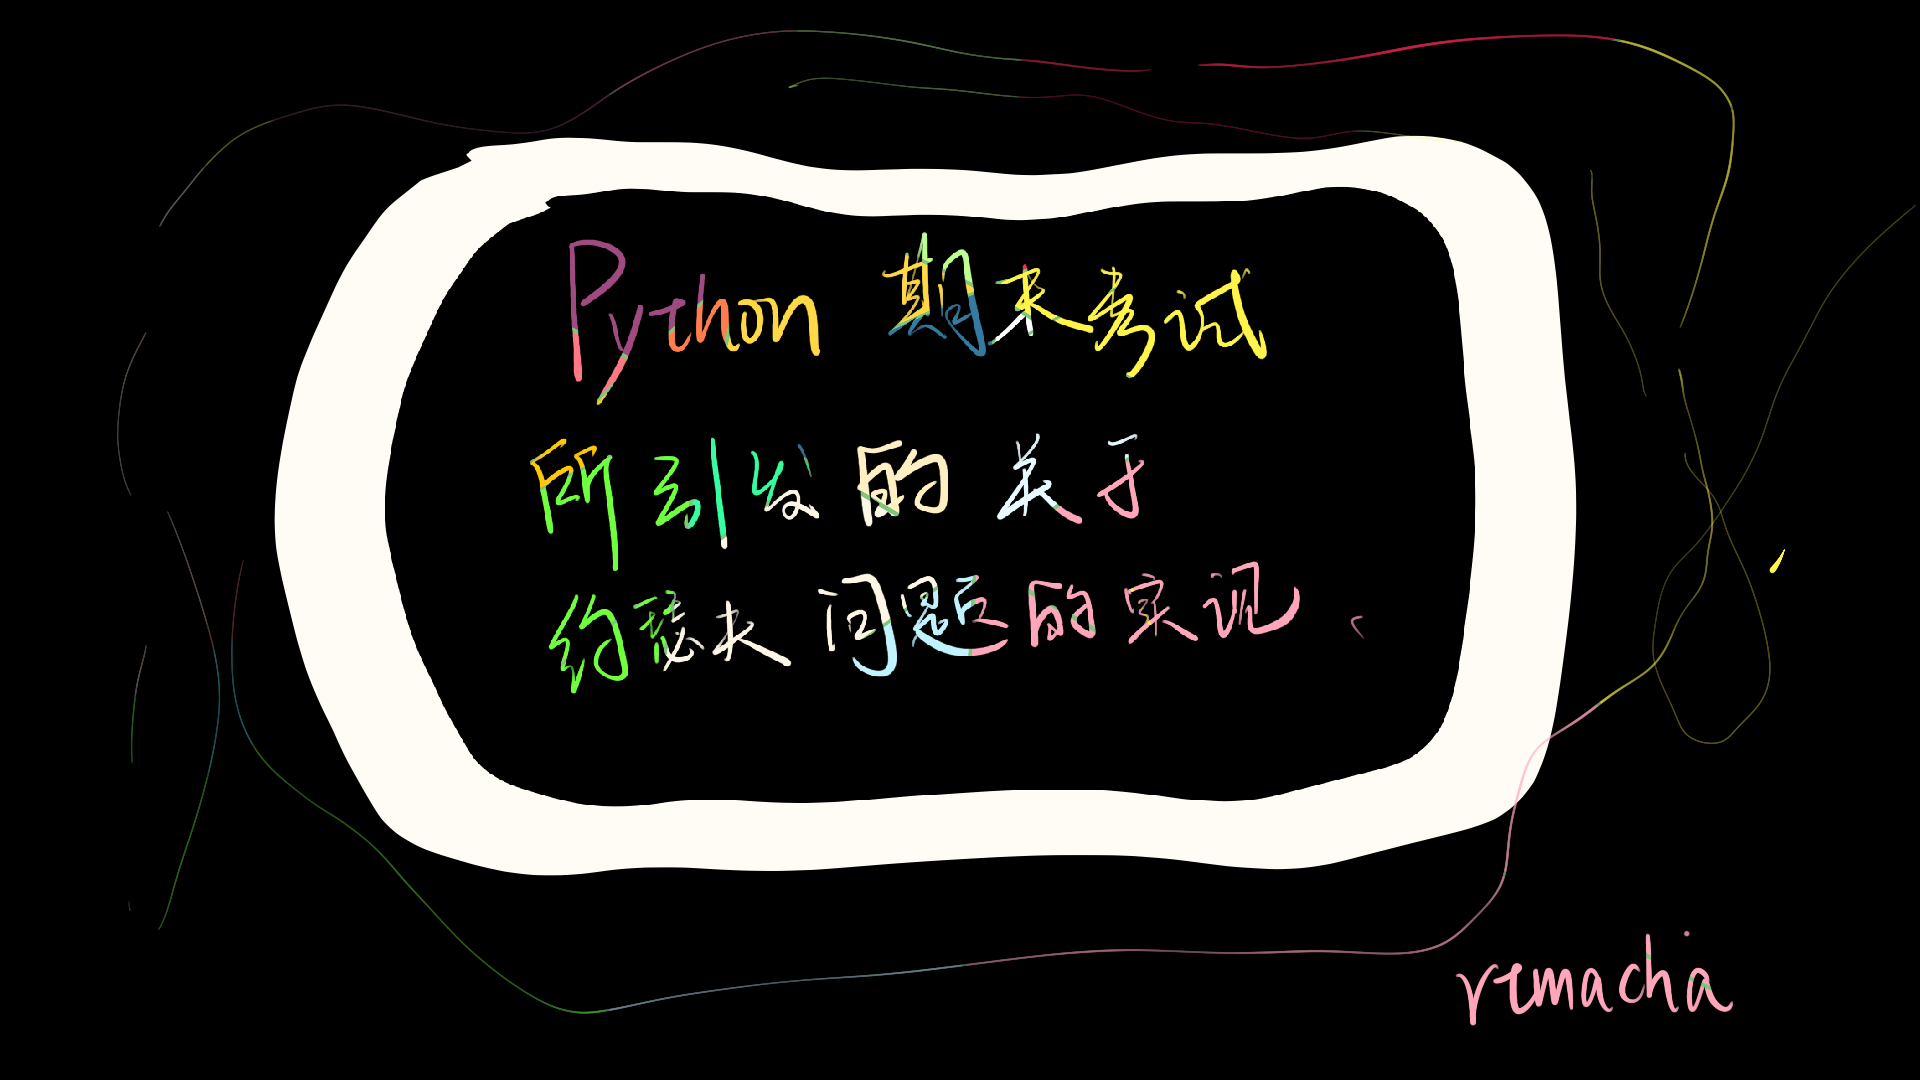 Python 期末考试
所引发的关于
约瑟夫问题的实现、
remacha